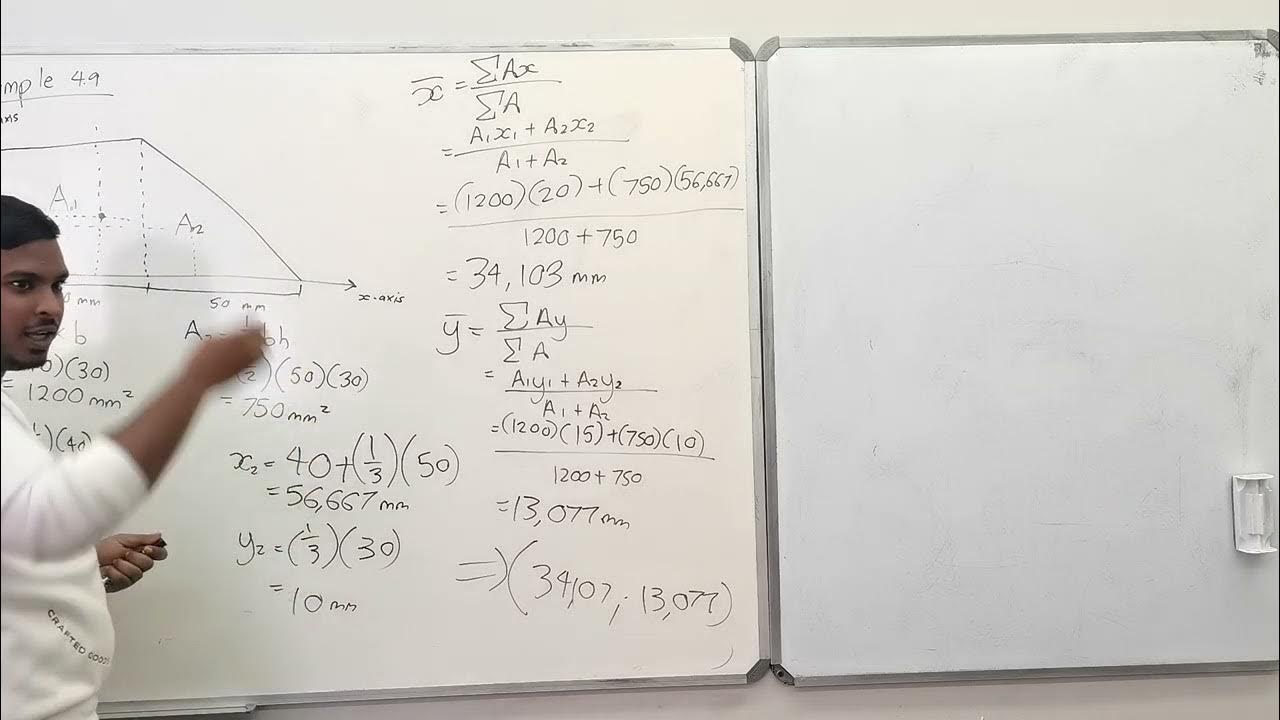 mple 4.9
xis
A1
A2
0 mm
50 mm
x-axis
b
A2 = 1/2 bh
0)(30)
= 1200 mm²
2)(50)(30)
= 750 mm²
)(40)
x2 = 40 + (1/3)(50)
= 56,667 mm
y2 = (1/3)(30)
= 10 mm
x̄ = ΣAx / ΣA
= A1x1 + A2x2 / A1 + A2
= (1200)(20) + (750)(56,667) / 1200 + 750
= 34,103 mm
ȳ = ΣAy / ΣA
= A1y1 + A2y2 / A1 + A2
= (1200)(15) + (750)(10) / 1200 + 750
= 13,077 mm
⇒ (34,07; 13,077)
CRAFTED GOODS